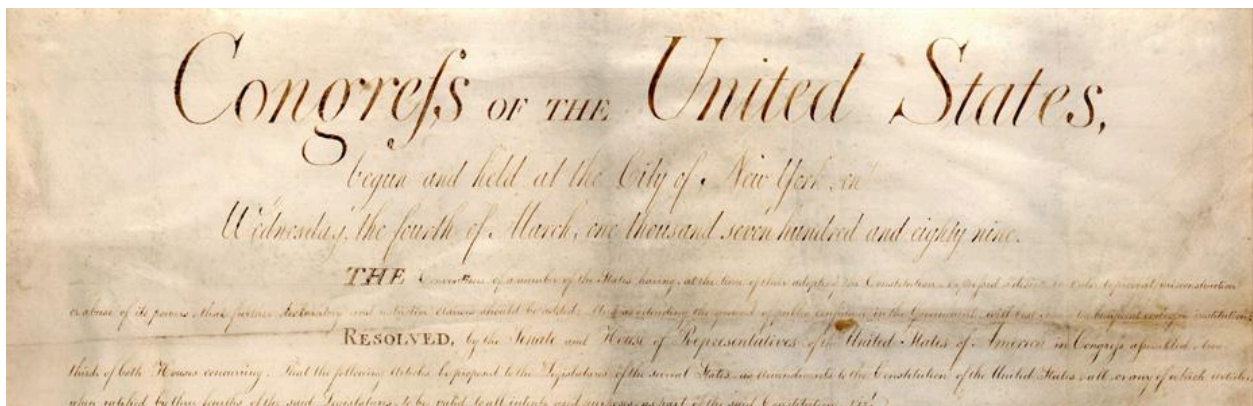 Congreſs OF THE United States,
begun and held at the City of New York, on
Wednesday, the fourth of March, one thousand seven hundred and eighty nine.
THE Conventions of a number of the States having, at the time of their adopting the Constitution, expreſsed a desire, in order to prevent misconstruction
or abuse of its powers, that further declaratory and restrictive clauses should be added: And as extending the ground of public confidence in the Government, will best ensure the beneficent ends of its institution
RESOLVED, by the Senate and House of Representatives of the United States of America in Congreſs aſsembled, two
thirds of both Houses concurring, That the following Articles be proposed to the Legislatures of the several States, as Amendments to the Constitution of the United States, all, or any of which articles,
when ratified by three fourths of the said Legislatures, to be valid to all intents and purposes, as part of the said Constitution, viz.